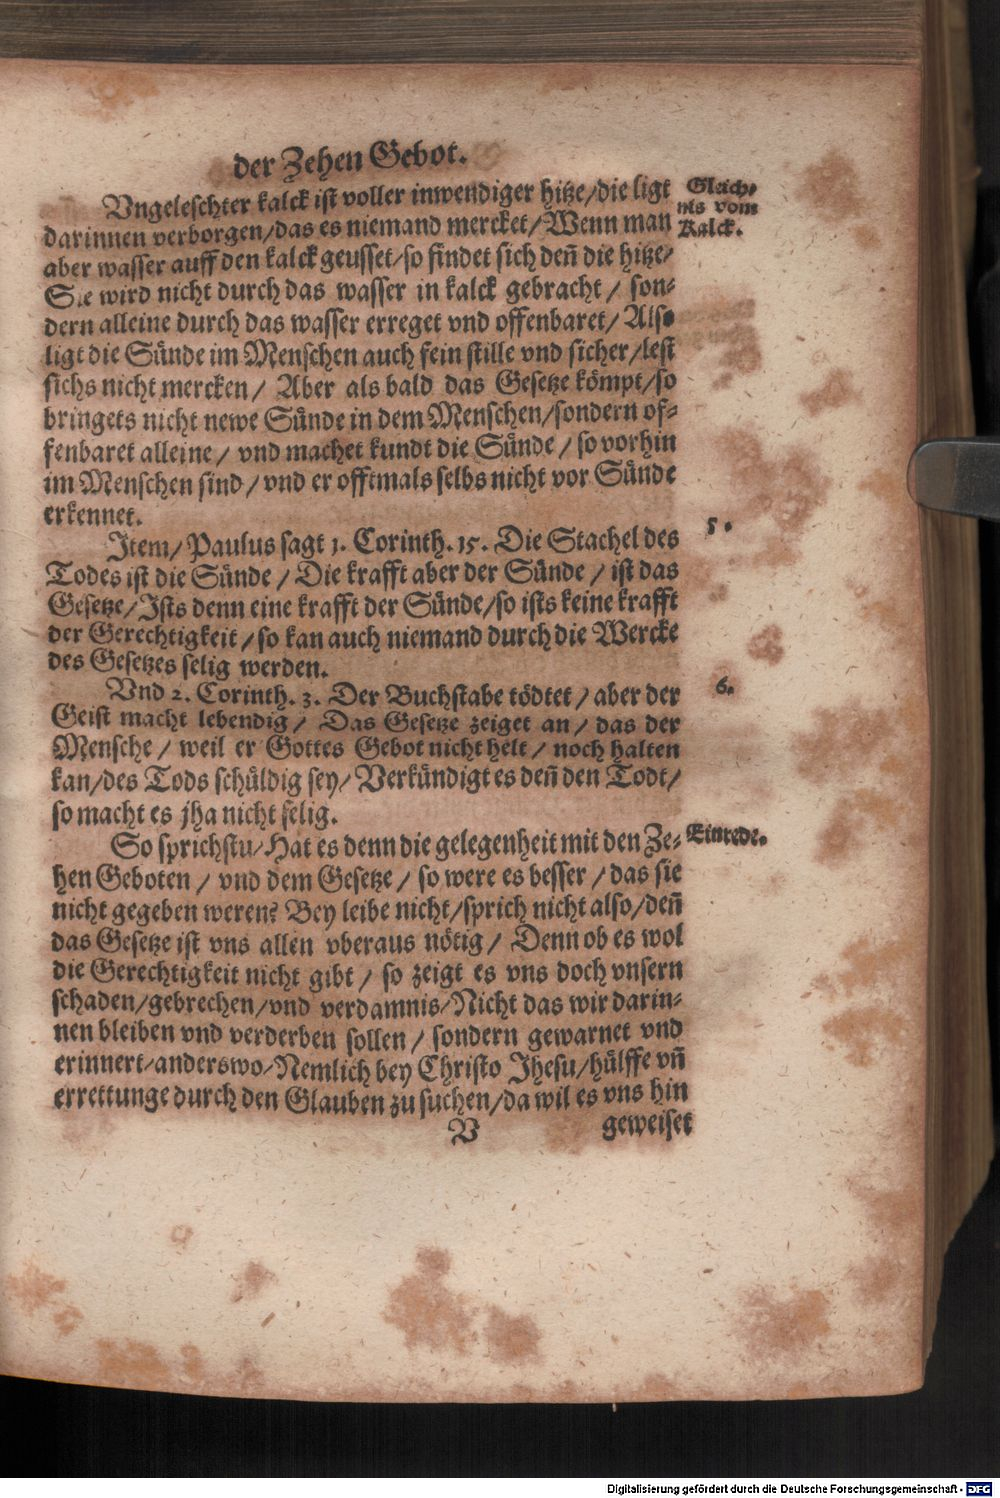 der Zehen Gebot.
Vngeleschter kalck ist voller inwendiger hitze/die ligt
darinnen verborgen/das es niemand mercket/Wenn man
aber wasser auff den kalck geusset/so findet sich deñ die hitze/
Sie wird nicht durch das wasser in kalck gebracht/ son-
dern alleine durch das wasser erreget vnd offenbaret/ Also
ligt die Sünde im Menschen auch fein stille vnd sicher/lest
sichs nicht mercken/ Aber als bald das Gesetze kömpt/so
bringets nicht newe Sünde in dem Menschen/sondern of-
fenbaret alleine/ vnd machet kundt die Sünde/ so vorhin
im Menschen sind/ vnd er offtmals selbs nicht vor Sünde
erkennet.
Gleich-
nis vom
Kalck.
Item/ Paulus sagt 1. Corinth. 15. Die Stachel des
Todes ist die Sünde/ Die krafft aber der Sünde/ ist das
Gesetze/Ists denn eine krafft der Sünde/so ists keine krafft
der Gerechtigkeit/ so kan auch niemand durch die Wercke
des Gesetzes selig werden.
5.
Vnd 2. Corinth. 3. Der Buchstabe tödtet/ aber der
Geist macht lebendig/ Das Gesetze zeiget an/ das der
Mensche/ weil er Gottes Gebot nicht helt/ noch halten
kan/des Tods schüldig sey/ Verkündigt es deñ den Todt/
so macht es jha nicht selig.
6.
So sprichstu/Hat es denn die gelegenheit mit den Ze-
hen Geboten/ vnd dem Gesetze/ so were es besser/ das sie
nicht gegeben weren? Bey leibe nicht/sprich nicht also/deñ
das Gesetze ist vns allen vberaus nötig/ Denn ob es wol
die Gerechtigkeit nicht gibt/ so zeigt es vns doch vnsern
schaden/gebrechen/vnd verdamnis/Nicht das wir darin-
nen bleiben vnd verderben sollen/ sondern gewarnet vnd
erinnert/anderswo/Nemlich bey Christo Jhesu/hülffe vñ
errettunge durch den Glauben zu suchen/da wil es vns hin
Einrede.
V geweiset
Digitalisierung gefördert durch die Deutsche Forschungsgemeinschaft - DFG